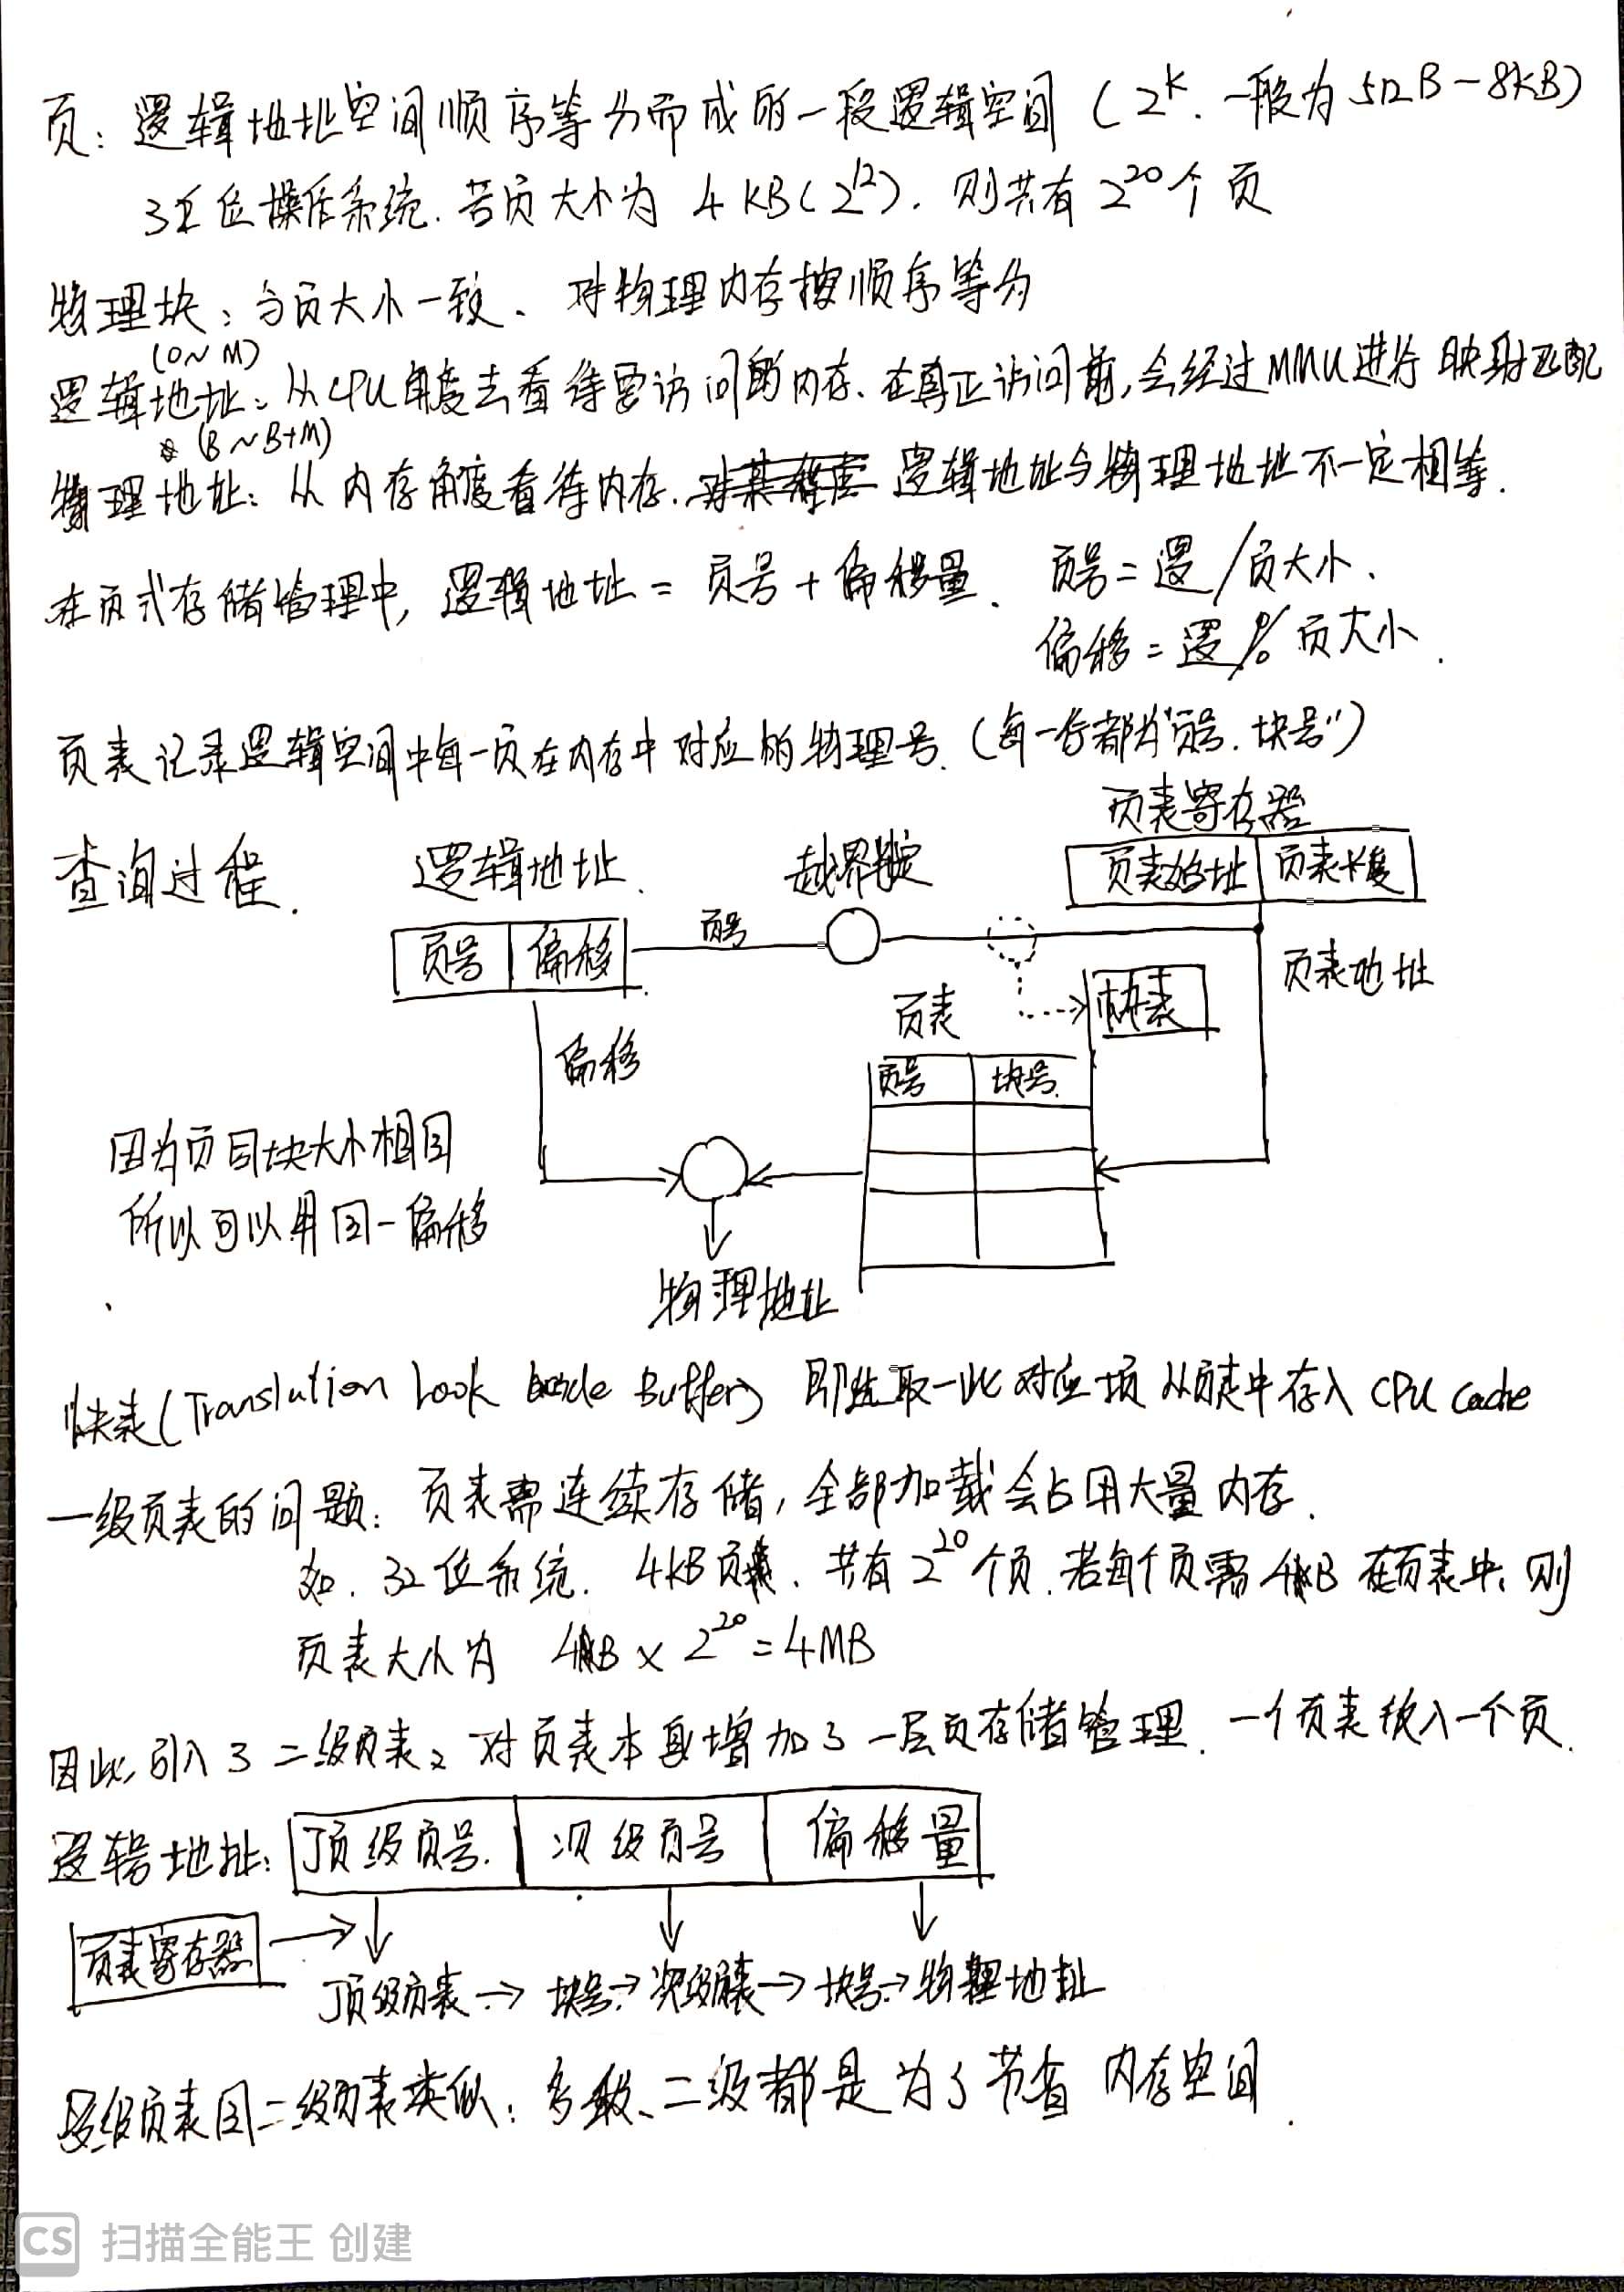 页：逻辑地址空间顺序等分而成的一段逻辑空间（2^k. 一般为512B-8KB）
32位操作系统. 若页大小为 4KB(2^12). 则共有 2^20 个页
物理块：与页大小一致、对物理内存按顺序等分
(0~M)
逻辑地址：从CPU角度去看待要访问的内存、在真正访问前,会经过MMU进行映射匹配
(B~B+M)
物理地址：从内存角度看待内存. 逻辑地址与物理地址不一定相等.
在页式存储管理中, 逻辑地址 = 页号 + 偏移量、 页号=逻/页大小、
偏移=逻%页大小.
页表记录逻辑空间中每一页在内存中对应的物理号.(每一行都为"页号.块号")
页表寄存器
查询过程. 逻辑地址. 越界判定 页表始址 页表长度
页号 偏移 页号
页表地址
页表 快表
偏移
页号 块号.
因为页同块大小相同
所以可以用同一偏移
物理地址
快表(Translation Look Buffer) 即选取一些对应项从页表中存入 CPU Cache
一级页表的问题：页表需连续存储,全部加载会占用大量内存.
如. 32位系统. 4KB页、共有 2^20 个页.若每个页需 4B 在页表中,则
页表大小为 4B × 2^20 = 4MB
因此,引入了二级页表、对页表本身增加了一层页存储管理. 一个页表放入一个页.
逻辑地址: 顶级页号. 次级页号 偏移量
页表寄存器
顶级页表→块号→次级页表→块号→物理地址
多级页表同二级页表类似：多级、二级都是为了节省 内存空间.
CS 扫描全能王 创建